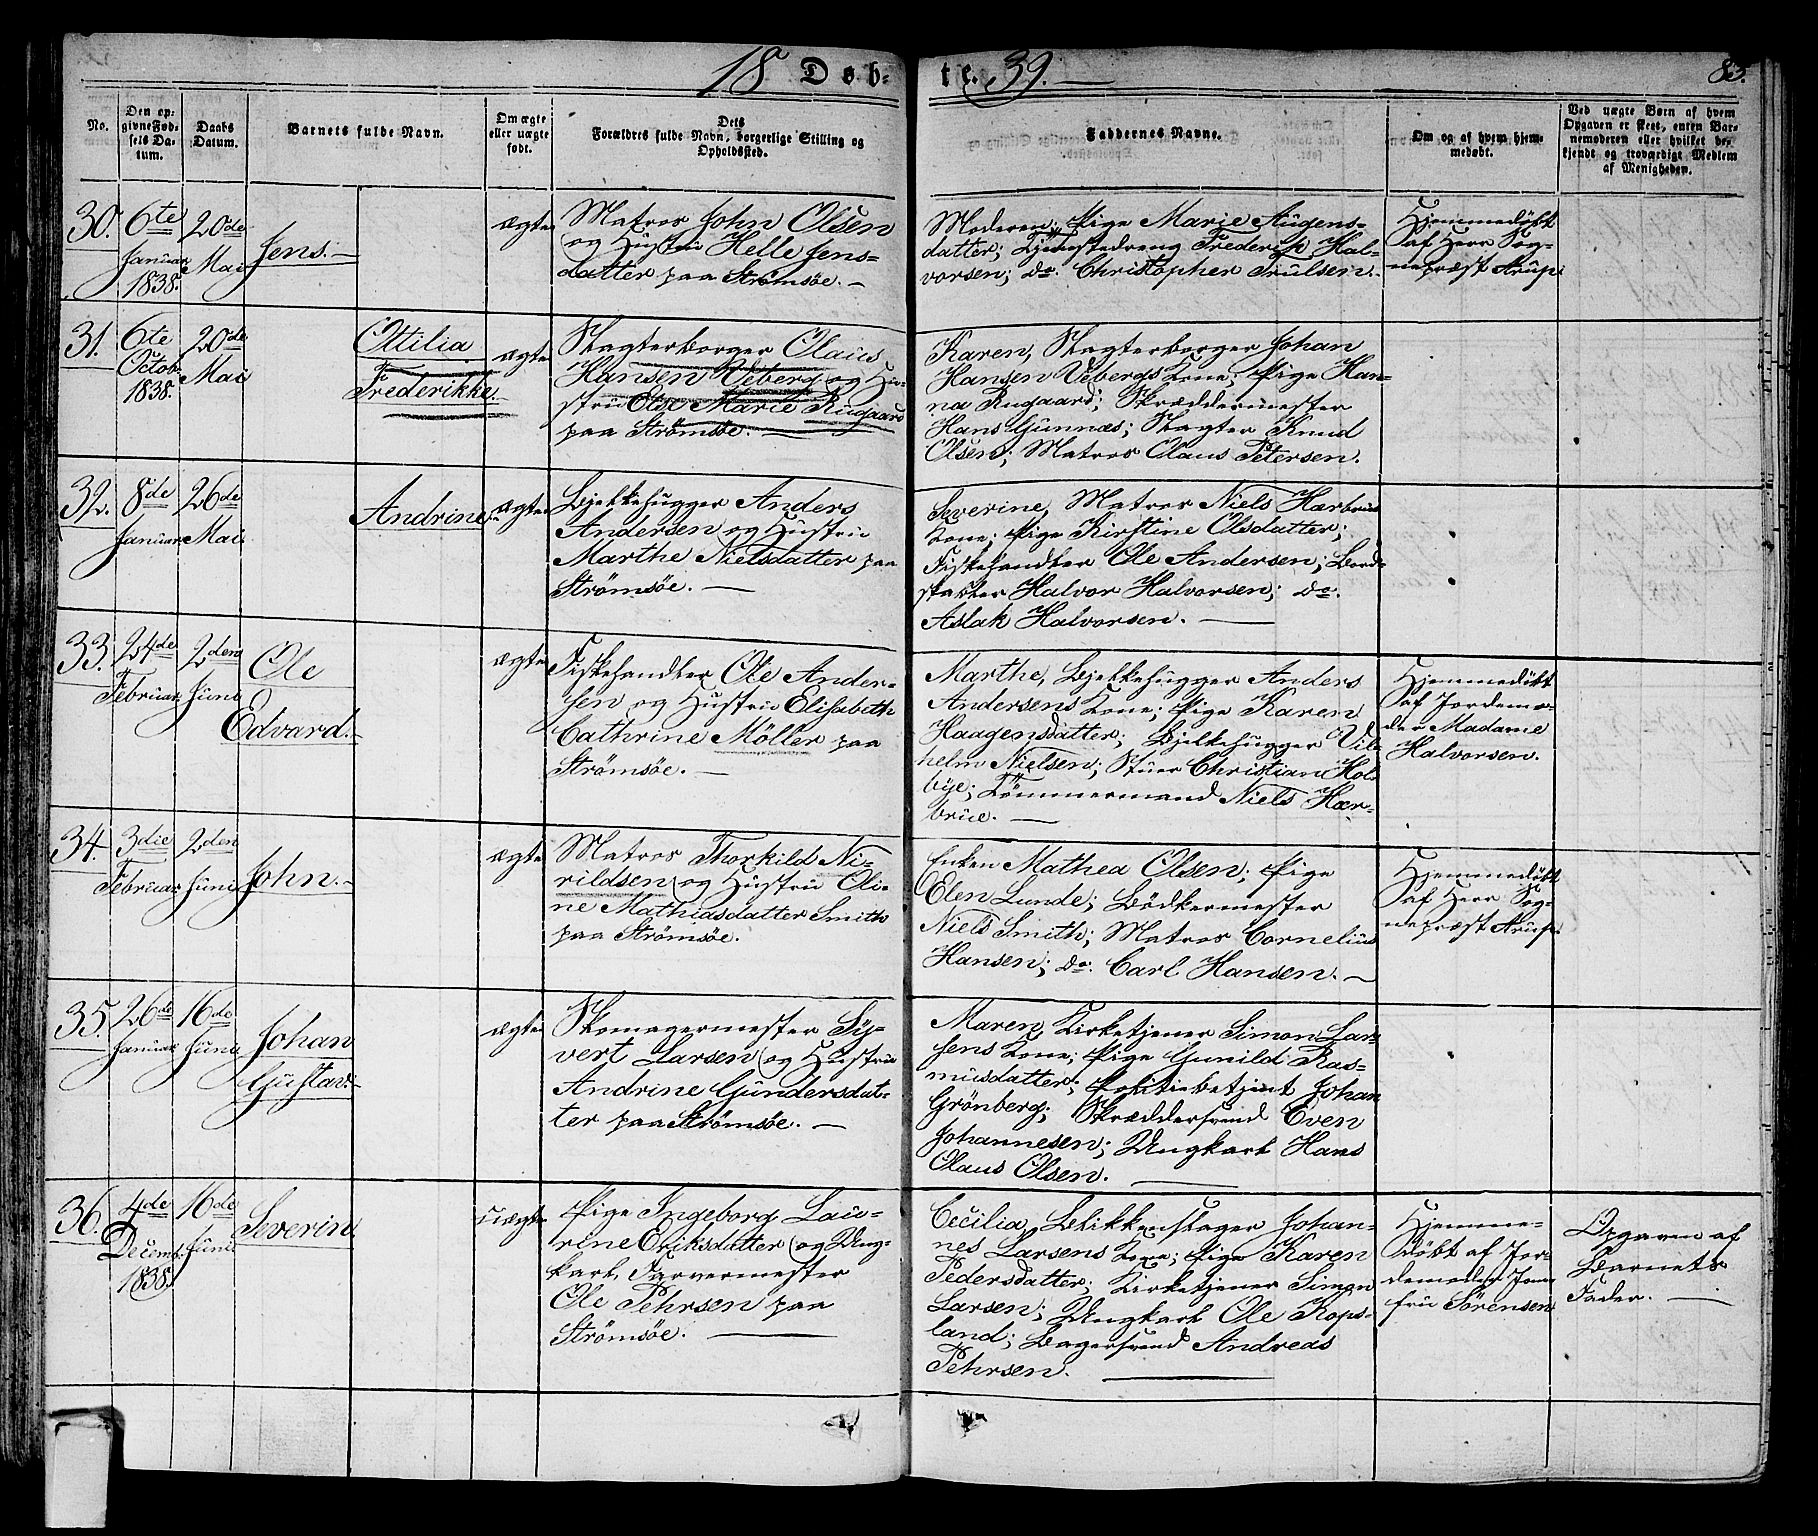 18 Döb-
te. 39.
83.
No.
Den op-
givne Fød-
sels Da-
tum.
Daabs
Datum.
Barnets fulde Navn.
Om ægte
eller uægte
født.
Dets
Forældres fulde Navn, borgerlige Stilling og
Opholdssted.
Faddernes Navne.
Om og af hvem hjem-
medøbt.
Ved uægte Børn af hvem
Opgaven er skeet, enten Bar-
nemoderen eller hvilket be-
kjendt og troværdigt Medlem
af Menigheden.
30.
6te
Januar
1838.
20de
Mai
Jens.
ægte
Matros John Olsen
og Hustru Helle Jens-
datter paa Strömsöe.
Moderen; Pige Marie Augens-
datter; Tjenestedreng Frederik Hal-
vorsen; do. Christopher Trulsen.
Hjemmedöbt
af Herr Sog-
nepræst Arup.
31.
6te
Octob.
1838.
20de
Mai
Ottilia
Frederikke.
ægte
Slagterborger Olaus
Hansen Veberg og Hu-
stru Else Marie Rugaard
paa Strömsöe.
Karen, Slagterborger Johan
Hansen Vebergs Kone; Pige Han-
na Rugaard; Skræddermester
Hans Gunnæs; Slagter Knud
Olsen; Matros Olaus Petersen.
32.
8de
Januar
26de
Mai
Andrine
ægte
Bjelkehugger Anders
Andersen og Hustru
Marthe Nielsdatter paa
Strömsöe.
Severine, Matros Niels Hærbrus
Kone; Pige Kirstine Olsdatter;
Fiskehandler Ole Andersen; Bord-
stabler Halvor Halvorsen; do.
Aslak Halvorsen.
33.
24de
Februar
2den
Juni
Ole
Edvard.
ægte
Fiskehandler Ole Ander-
sen og Hustru Elisabeth
Cathrine Möller paa
Strömsöe.
Marthe, Bjelkehugger Anders
Andersens Kone; Pige Karen
Haagensdatter; Bjelkehugger Vil-
helm Nielsen; Stuer Christian Hol-
bye; Tömmermand Niels Hær-
brue.
Hjemmedöbt
af Jordemo-
der Madame
Halvorsen.
34.
3die
Februar
2den
Juni
John.
ægte
Matros Thorkild Ni-
rildsen og Hustru Oli-
ne Mathiasdatter Smith
paa Strömsöe.
Enken Mathea Olsen; Pige
Elen Lunde; Bödkermester
Niels Smith; Matros Cornelius
Hansen; do. Carl Hansen.
Hjemmedöbt
af Herr Sog-
nepræst Arup.
35.
26de
Januar
16de
Juni
Johan
Gustav.
ægte
Skomagermester Sy-
vert Larsen og Hustru
Andrine Gundersdat-
ter paa Strömsöe.
Maren, Kirketjener Simon Lar-
sens Kone; Pige Gunild Ras-
musdatter; Politiebetjent Johan
Grönberg; Skræddersvend Even
Johannesen; Ungkarl Hans
Olaus Olsen.
36.
4de
Decemb.
1838.
16de
Juni
Severin
uægte
Pige Ingeborg Lau-
rine Eriksdatter og Ung-
karl, Farvermester
Ole Pehrsen paa
Strömsöe.
Cecilia, Blikkenslager Johan-
nes Larsens Kone; Pige Karen
Pedersdatter; Kirketjener Simon
Larsen; Ungkarl Ole Kops-
land; Bagersvend Andreas
Pehrsen.
Hjemme-
döbt af Jor-
demoder Jom-
fru Sörensen
Opgaven af
Barnets
Fader.